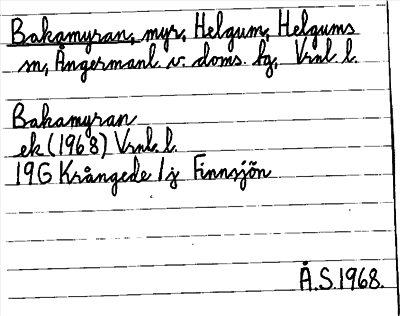 Bakamyran, myr, Helgum, Helgums
sn, Ångermanl. v. doms. fg, Vrnl. l.
Bakamyran
ek (1968) Vrnl. l.
19G Krångede 1j Finnsjön
Å.S. 1968.